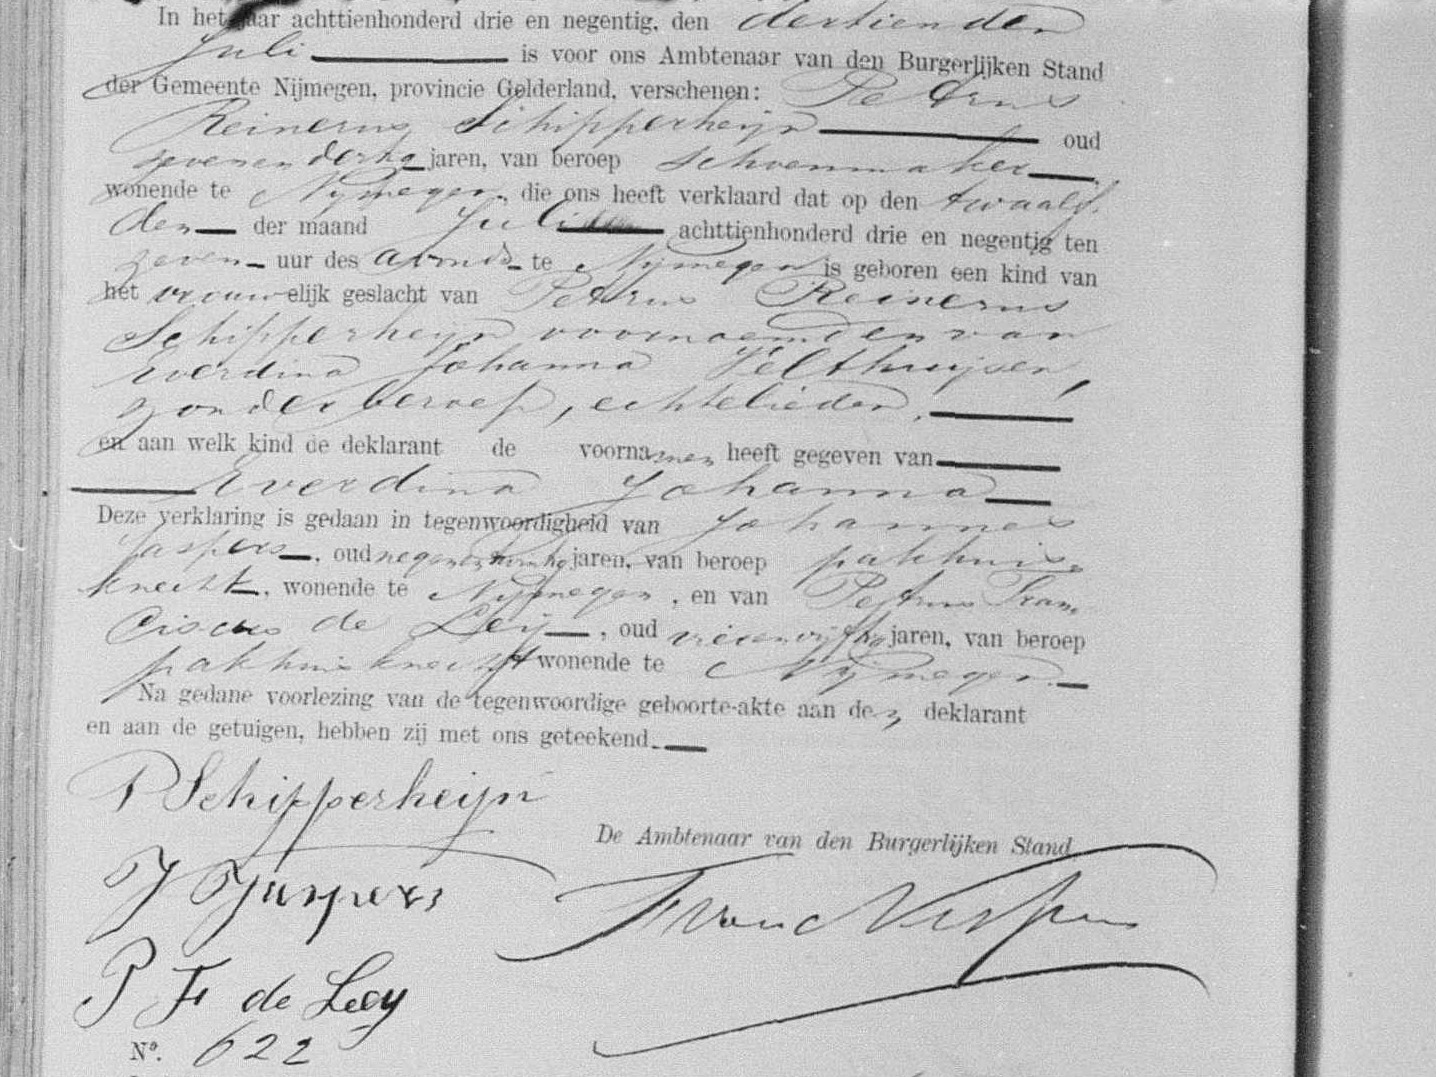 In het jaar achttienhonderd drie en negentig, den dertienden
Juli is voor ons Ambtenaar van den Burgerlijken Stand
der Gemeente Nijmegen, provincie Gelderland, verschenen: Petrus
Reinerus Schipperheijn oud
zevenendertig jaren, van beroep schoenmaker
wonende te Nijmegen, die ons heeft verklaard dat op den twaalf-
den der maand Juli achttienhonderd drie en negentig ten
zeven uur des avonds te Nijmegen is geboren een kind van
het vrouwelijk geslacht van Petrus Reinerus
Schipperheijn voornoemd en van
Everdina Johanna Velthuijsen,
zonder beroep, echtelieden,
en aan welk kind de deklarant de voornamen heeft gegeven van
Everdina Johanna
Deze verklaring is gedaan in tegenwoordigheid van Johannes
Jaspers, oud negenentwintig jaren, van beroep pakhuis-
knecht, wonende te Nijmegen, en van Petrus Fran
ciscus de Leij, oud vierenvijftig jaren, van beroep
pakhuisknecht wonende te Nijmegen.
Na gedane voorlezing van de tegenwoordige geboorte-akte aan den deklarant
en aan de getuigen, hebben zij met ons geteekend.
P Schipperheijn
De Ambtenaar van den Burgerlijken Stand
J Jaspers
P F de Leey
No. 622